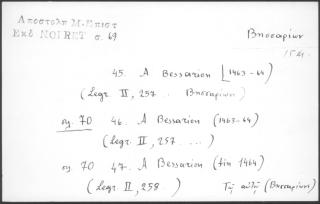 Ἀποστολη Μ. Ἐπιστ
Ἐκδ NOIRET σ. 69
Βησσαρίων
15 αι.
45. A Bessarion [1463-64)
(Legr. II, 257 .. Βησσαρίων)
σχ. 70 46. A Bessarion (1463-64)
(Legr. II, 257 ...)
σχ 70 47. A Bessarion (fin 1464)
(Legr. II, 258 ) Τῷ αὐτῷ (Βησσαρίωνι)